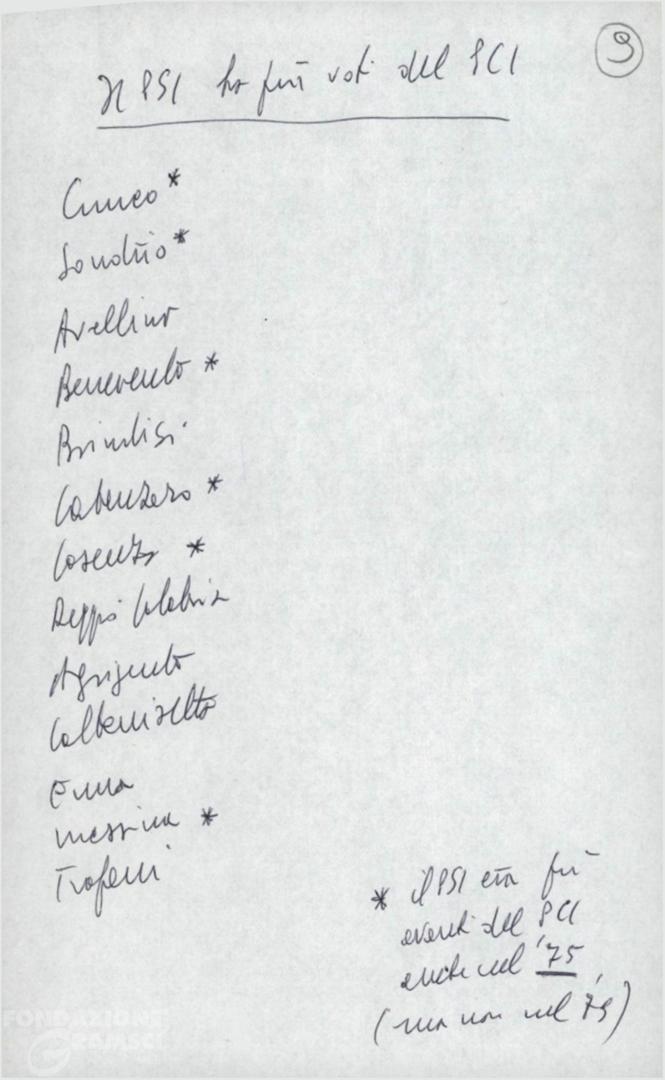 9
Il PSI ha più voti del PCI
Cuneo *
Sondrio *
Avellino
Benevento *
Brindisi
Catanzaro *
Cosenza *
Reggio Calabria
Agrigento
Caltanisetta
Enna
Messina *
Trapani
* il PSI era più
avanti del PCI
anche nel '75
(ma non nel '79)
FONDAZIONE
GRAMSCI